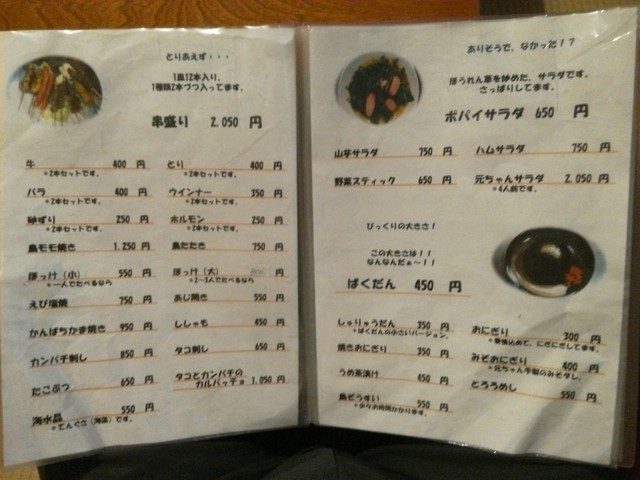 とりあえず・・・
1皿12本入り、
1種類2本づつ入ってます。
串盛り 2.050 円
牛 400 円
*2本セットです。
とり 400 円
*2本セットです。
バラ 400 円
*2本セットです。
ウインナー 350 円
*2本セットです。
砂ずり 250 円
*2本セットです。
ホルモン 250 円
*2本セットです。
鳥モモ焼き 1.250 円
鳥たたき 750 円
ほっけ（小） 550 円
*一人でたべるなら
ほっけ（大） 円
*2～3人でたべるなら
えび塩焼 750 円
あじ開き 550 円
かんぱちかま焼き 950 円
ししゃも 450 円
カンパチ刺し 850 円
タコ刺し 650 円
たこぶつ 650 円
タコとカンパチの
カルパッチョ 1.050 円
海水晶 550 円
*てんぐさ（海藻）です。
ありそうで、なかった！？
ほうれん草を炒めた、サラダです。
さっぱりしてます。
ポパイサラダ 650 円
山芋サラダ 750 円
ハムサラダ 750 円
野菜スティック 650 円
元ちゃんサラダ 2.050 円
*4人前です。
びっくりの大きさ！
この大きさは！！
なんなんだぁ～！！
ばくだん 450 円
しゃりゅうだん 350 円
*ばくだんの小さいバージョン。
おにぎり 300 円
*愛情込めて、にぎにぎしてます。
焼きおにぎり 350 円
みそおにぎり 400 円
*元ちゃん手製のみそダレ。
うめ茶漬け 450 円
とろろめし 550 円
鳥ぞうすい 550 円
*少々お時間かかります。